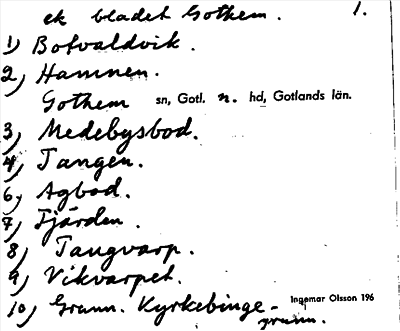 ek bladet Gothem. 1.
1) Botvaldvik.
2) Hamnen.
Gothem sn, Gotl. n. hd, Gotlands län.
3) Medebysbod.
4) Tangen.
6) Agbod.
7) Fjärden.
8) Tangvarp.
9) Vikvarpet.
10) Grunn. Kyrkebinge-
Ingemar Olsson 196
grunn.